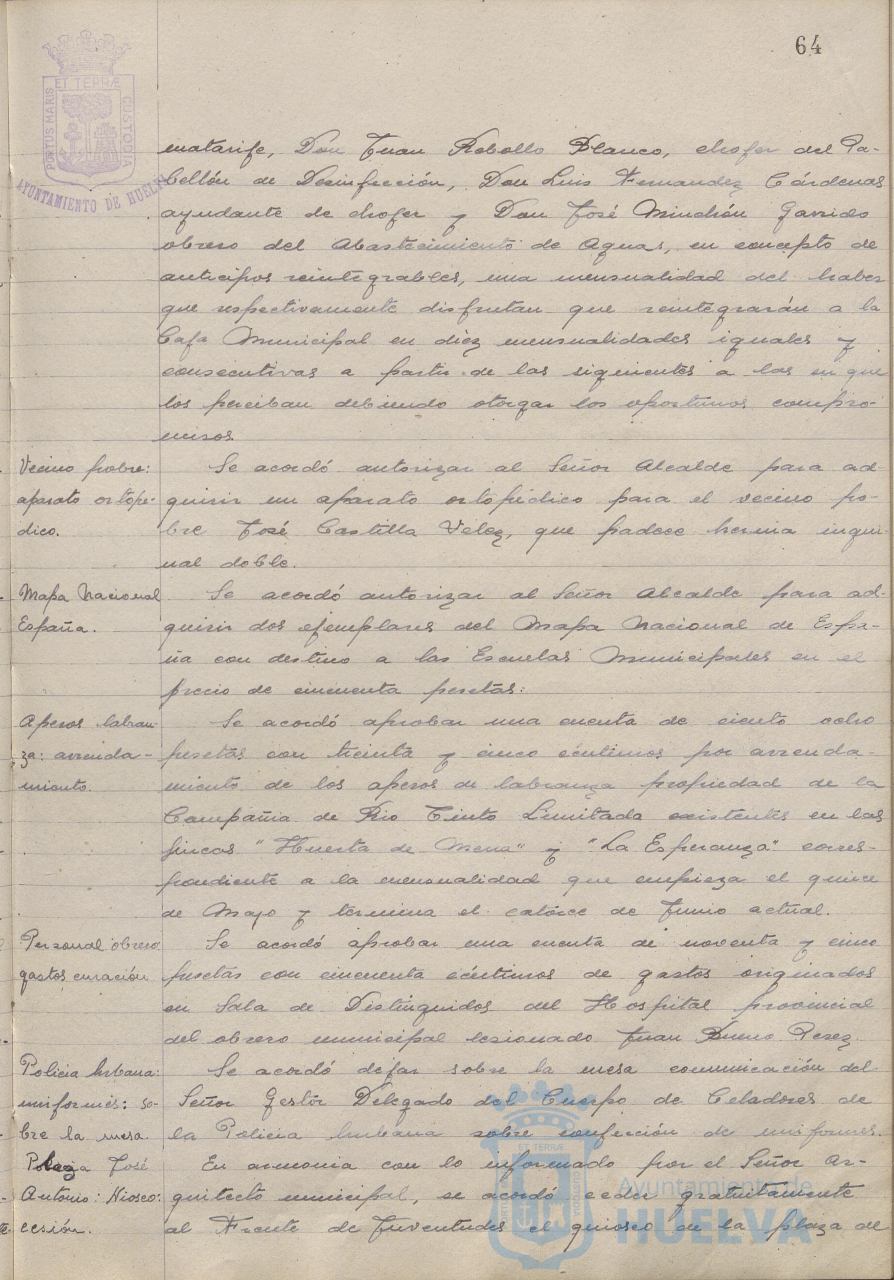 64
PORTUS MARIS ET TERRÆ CUSTODIA
AYUNTAMIENTO DE HUELVA
matarife, Don Juan Rebollo Blanco, chofer del Pa-
bellón de Desinfección, Don Luis Fernandez Cárdenas
ayudante de chofer y Don José Minchón Garrido
obrero del Abastecimiento de Aguas, en concepto de
anticipos reintegrables, una mensualidad del haber
que respectivamente disfrutan que reintegrarán a la
Caja Municipal en diez mensualidades iguales y
consecutivas a partir de las siguientes a las en que
los perciban debiendo otorgar los oportunos compro-
misos.
Vecino pobre:
aparato ortopé-
dico.
Se acordó autorizar al Señor Alcalde para ad-
quirir un aparato ortopédico para el vecino po-
bre José Castilla Velez, que padece hernia ingui-
nal doble.
Mapa Nacional
España.
Se acordó autorizar al Señor Alcalde para ad-
quirir dos ejemplares del Mapa Nacional de Espa-
ña con destino a las Escuelas Municipales en el
precio de cincuenta pesetas.
Aperos labran-
za: arrenda-
miento.
Se acordó aprobar una cuenta de ciento ocho
pesetas con treinta y cinco céntimos por arrenda-
miento de los aperos de labranza propiedad de la
Compañia de Rio Tinto Limitada existentes en las
fincas "Huerta de Mena" y "La Esperanza" corres-
pondiente a la mensualidad que empieza el quince
de Mayo y termina el catorce de Junio actual.
Personal obrero
gastos curación
Se acordó aprobar una cuenta de noventa y cinco
pesetas con cincuenta céntimos de gastos originados
en Sala de Distinguidos del Hospital provincial
del obrero municipal lesionado Juan Bueno Perez.
Policia Urbana:
uniformes: so-
bre la mesa.
Se acordó dejar sobre la mesa comunicación del
Señor Gestor Delegado del Cuerpo de Celadores de
la Policia Urbana sobre confección de uniformes.
Plaza José
Antonio: Kiosco:
cesión.
En armonia con lo informado por el Señor Ar-
quitecto municipal, se acordó ceder gratuitamente
al Frente de Juventudes el quiosco de la plaza de
Ayuntamiento de
HUELVA